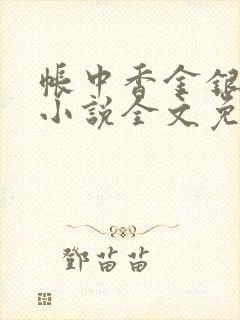 帳中香金銀
小說全文免
鄧苗苗